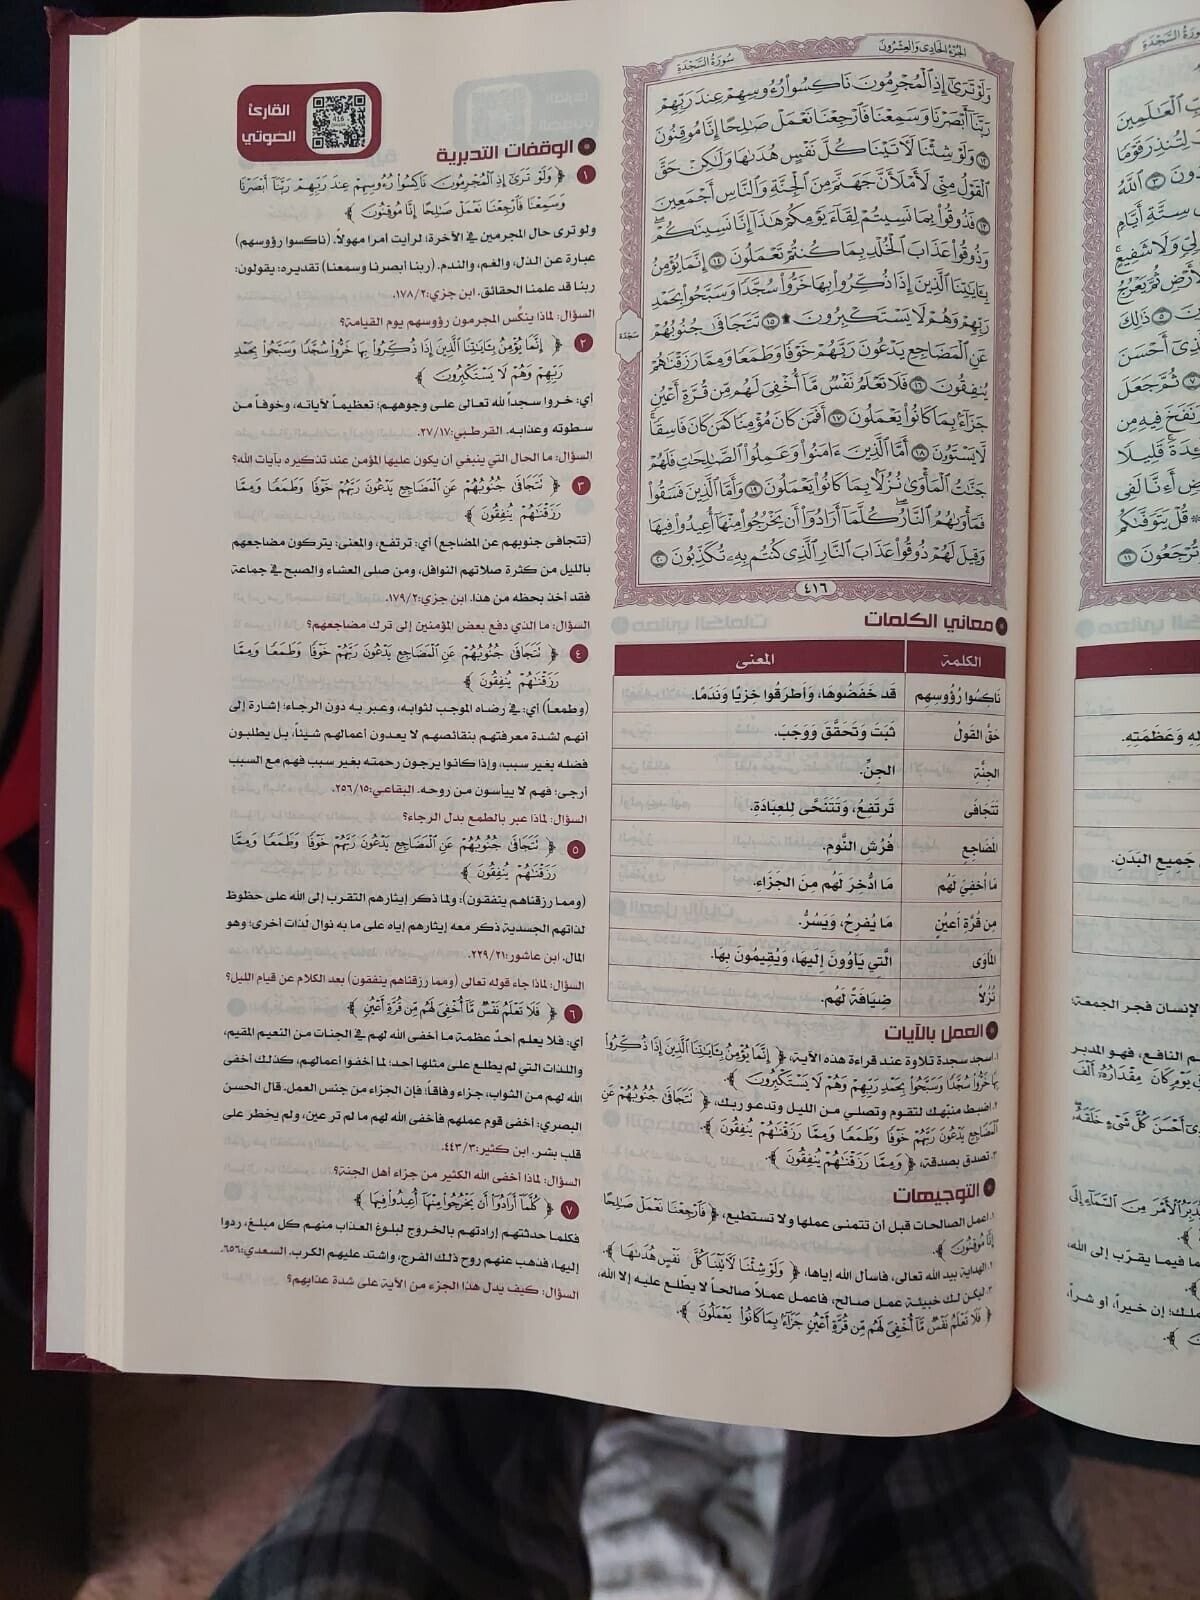 الجزء الحادي والعشرون
سورة السجدة
وَلَوْ تَرَىٰٓ إِذِ ٱلْمُجْرِمُونَ نَاكِسُوا۟ رُءُوسِهِمْ عِندَ رَبِّهِمْ
رَبَّنَآ أَبْصَرْنَا وَسَمِعْنَا فَٱرْجِعْنَا نَعْمَلْ صَـٰلِحًا إِنَّا مُوقِنُونَ
١٢ وَلَوْ شِئْنَا لَـَٔاتَيْنَا كُلَّ نَفْسٍ هُدَىٰهَا وَلَـٰكِنْ حَقَّ
ٱلْقَوْلُ مِنِّى لَأَمْلَأَنَّ جَهَنَّمَ مِنَ ٱلْجِنَّةِ وَٱلنَّاسِ أَجْمَعِينَ
١٣ فَذُوقُوا۟ بِمَا نَسِيتُمْ لِقَآءَ يَوْمِكُمْ هَـٰذَآ إِنَّا نَسِينَـٰكُمْ ۖ
وَذُوقُوا۟ عَذَابَ ٱلْخُلْدِ بِمَا كُنتُمْ تَعْمَلُونَ ١٤ إِنَّمَا يُؤْمِنُ
بِـَٔايَـٰتِنَا ٱلَّذِينَ إِذَا ذُكِّرُوا۟ بِهَا خَرُّوا۟ سُجَّدًا وَسَبَّحُوا۟ بِحَمْدِ
رَبِّهِمْ وَهُمْ لَا يَسْتَكْبِرُونَ ۩ ١٥ تَتَجَافَىٰ جُنُوبُهُمْ
سجدة
عَنِ ٱلْمَضَاجِعِ يَدْعُونَ رَبَّهُمْ خَوْفًا وَطَمَعًا وَمِمَّا رَزَقْنَـٰهُمْ
يُنفِقُونَ ١٦ فَلَا تَعْلَمُ نَفْسٌ مَّآ أُخْفِىَ لَهُم مِّن قُرَّةِ أَعْيُنٍ
جَزَآءًۢ بِمَا كَانُوا۟ يَعْمَلُونَ ١٧ أَفَمَن كَانَ مُؤْمِنًا كَمَن كَانَ فَاسِقًا ۚ
لَّا يَسْتَوُۥنَ ١٨ أَمَّا ٱلَّذِينَ ءَامَنُوا۟ وَعَمِلُوا۟ ٱلصَّـٰلِحَـٰتِ فَلَهُمْ
جَنَّـٰتُ ٱلْمَأْوَىٰ نُزُلًۢا بِمَا كَانُوا۟ يَعْمَلُونَ ١٩ وَأَمَّا ٱلَّذِينَ فَسَقُوا۟
فَمَأْوَىٰهُمُ ٱلنَّارُ ۖ كُلَّمَآ أَرَادُوٓا۟ أَن يَخْرُجُوا۟ مِنْهَآ أُعِيدُوا۟ فِيهَا
وَقِيلَ لَهُمْ ذُوقُوا۟ عَذَابَ ٱلنَّارِ ٱلَّذِى كُنتُم بِهِۦ تُكَذِّبُونَ ٢٠
٤١٦
معاني الكلمات
الكلمة المعنى
نَاكِسُوا رُؤُوسِهِم قَد خَفَضُوهَا، وَأَطرَقُوا خِزيًا وَنَدَمًا.
حَقَّ القَولُ ثَبَتَ وَتَحَقَّقَ وَوَجَبَ.
الجِنَّةِ الجِنِّ.
تَتَجَافَى تَرتَفِعُ، وَتَتَنَحَّى لِلعِبَادَةِ.
المَضَاجِعِ فُرُشِ النَّومِ.
مَا أُخفِيَ لَهُم مَا ادُّخِرَ لَهُم مِنَ الجَزَاءِ.
مِن قُرَّةِ أَعيُنٍ مَا يُفرِحُ، وَيَسُرُّ.
المَأوَى الَّتِي يَأوُونَ إِلَيهَا، وَيُقِيمُونَ بِهَا.
نُزُلاً ضِيَافَةً لَهُم.
العمل بالآيات
١. اسجد سجدة تلاوة عند قراءة هذه الآية، ﴿ إِنَّمَا يُؤْمِنُ بِـَٔايَـٰتِنَا ٱلَّذِينَ إِذَا ذُكِّرُوا۟
بِهَا خَرُّوا۟ سُجَّدًا وَسَبَّحُوا۟ بِحَمْدِ رَبِّهِمْ وَهُمْ لَا يَسْتَكْبِرُونَ ﴾.
٢. اضبط منبّهك لتقوم وتصلي من الليل وتدعو ربك، ﴿ تَتَجَافَىٰ جُنُوبُهُمْ عَنِ
ٱلْمَضَاجِعِ يَدْعُونَ رَبَّهُمْ خَوْفًا وَطَمَعًا وَمِمَّا رَزَقْنَـٰهُمْ يُنفِقُونَ ﴾.
٣. تصدق بصدقة، ﴿ وَمِمَّا رَزَقْنَـٰهُمْ يُنفِقُونَ ﴾.
التوجيهات
١. اعمل الصالحات قبل أن تتمنى عملها ولا تستطيع، ﴿ فَٱرْجِعْنَا نَعْمَلْ صَـٰلِحًا
إِنَّا مُوقِنُونَ ﴾.
٢. الهداية بيد الله تعالى، فاسأل الله إياها، ﴿ وَلَوْ شِئْنَا لَـَٔاتَيْنَا كُلَّ نَفْسٍ هُدَىٰهَا ﴾.
٣. ليكن لك خبيئة عمل صالح، فاعمل عملاً صالحاً لا يطّلع عليه إلا الله،
﴿ فَلَا تَعْلَمُ نَفْسٌ مَّآ أُخْفِىَ لَهُم مِّن قُرَّةِ أَعْيُنٍ جَزَآءًۢ بِمَا كَانُوا۟ يَعْمَلُونَ ﴾.
القارئ
الصوتي
416
الوقفات التدبرية
١ ﴿ وَلَوْ تَرَىٰٓ إِذِ ٱلْمُجْرِمُونَ نَاكِسُوا۟ رُءُوسِهِمْ عِندَ رَبِّهِمْ رَبَّنَآ أَبْصَرْنَا
وَسَمِعْنَا فَٱرْجِعْنَا نَعْمَلْ صَـٰلِحًا إِنَّا مُوقِنُونَ ﴾
ولو ترى حال المجرمين في الآخرة؛ لرأيت أمرا مهولاً. (ناكسوا رؤوسهم)
عبارة عن الذل، والغم، والندم. (ربنا أبصرنا وسمعنا) تقديره: يقولون:
ربنا قد علمنا الحقائق. ابن جزي:١٧٨/٢.
السؤال: لماذا ينكّس المجرمون رؤوسهم يوم القيامة؟
٢ ﴿ إِنَّمَا يُؤْمِنُ بِـَٔايَـٰتِنَا ٱلَّذِينَ إِذَا ذُكِّرُوا۟ بِهَا خَرُّوا۟ سُجَّدًا وَسَبَّحُوا۟ بِحَمْدِ
رَبِّهِمْ وَهُمْ لَا يَسْتَكْبِرُونَ ﴾
أي: خروا سجداً لله تعالى على وجوههم؛ تعظيماً لآياته، وخوفاً من
سطوته وعذابه. القرطبي:٢٧/١٧.
السؤال: ما الحال التي ينبغي أن يكون عليها المؤمن عند تذكيره بآيات الله؟
٣ ﴿ تَتَجَافَىٰ جُنُوبُهُمْ عَنِ ٱلْمَضَاجِعِ يَدْعُونَ رَبَّهُمْ خَوْفًا وَطَمَعًا وَمِمَّا
رَزَقْنَـٰهُمْ يُنفِقُونَ ﴾
(تتجافى جنوبهم عن المضاجع) أي: ترتفع، والمعنى: يتركون مضاجعهم
بالليل من كثرة صلاتهم النوافل، ومن صلى العشاء والصبح في جماعة
فقد أخذ بحظه من هذا. ابن جزي:١٧٩/٢.
السؤال: ما الذي دفع بعض المؤمنين إلى ترك مضاجعهم؟
٤ ﴿ تَتَجَافَىٰ جُنُوبُهُمْ عَنِ ٱلْمَضَاجِعِ يَدْعُونَ رَبَّهُمْ خَوْفًا وَطَمَعًا وَمِمَّا
رَزَقْنَـٰهُمْ يُنفِقُونَ ﴾
(وطمعاً) أي: في رضاه الموجب لثوابه، وعبر به دون الرجاء؛ إشارة إلى
أنهم لشدة معرفتهم بنقائصهم لا يعدون أعمالهم شيئاً، بل يطلبون
فضله بغير سبب، وإذا كانوا يرجون رحمته بغير سبب فهم مع السبب
أرجى؛ فهم لا ييأسون من روحه. البقاعي:٢٥٦/١٥.
السؤال: لماذا عبر بالطمع بدل الرجاء؟
٥ ﴿ تَتَجَافَىٰ جُنُوبُهُمْ عَنِ ٱلْمَضَاجِعِ يَدْعُونَ رَبَّهُمْ خَوْفًا وَطَمَعًا وَمِمَّا
رَزَقْنَـٰهُمْ يُنفِقُونَ ﴾
(ومما رزقناهم ينفقون): ولما ذكر إيثارهم التقرب إلى الله على حظوظ
لذاتهم الجسدية ذكر معه إيثارهم إياه على ما به نوال لذات أخرى؛ وهو
المال. ابن عاشور:٢٢٩/٢١.
السؤال: لماذا جاء قوله تعالى (ومما رزقناهم ينفقون) بعد الكلام عن قيام الليل؟
٦ ﴿ فَلَا تَعْلَمُ نَفْسٌ مَّآ أُخْفِىَ لَهُم مِّن قُرَّةِ أَعْيُنٍ ﴾
أي: فلا يعلم أحدٌ عظمة ما أخفى الله لهم في الجنات من النعيم المقيم،
واللذات التي لم يطلع على مثلها أحد؛ لما أخفوا أعمالهم، كذلك أخفى
الله لهم من الثواب، جزاء وفاقاً؛ فإن الجزاء من جنس العمل. قال الحسن
البصري: أخفى قوم عملهم فأخفى الله لهم ما لم تر عين، ولم يخطر على
قلب بشر. ابن كثير:٤٤٣/٣.
السؤال: لماذا أخفى الله الكثير من جزاء أهل الجنة؟
٧ ﴿ كُلَّمَآ أَرَادُوٓا۟ أَن يَخْرُجُوا۟ مِنْهَآ أُعِيدُوا۟ فِيهَا ﴾
فكلما حدثتهم إرادتهم بالخروج لبلوغ العذاب منهم كل مبلغ، ردوا
إليها، فذهب عنهم روح ذلك الفرج، واشتد عليهم الكرب. السعدي:٦٥٦.
السؤال: كيف يدل هذا الجزء من الآية على شدة عذابهم؟